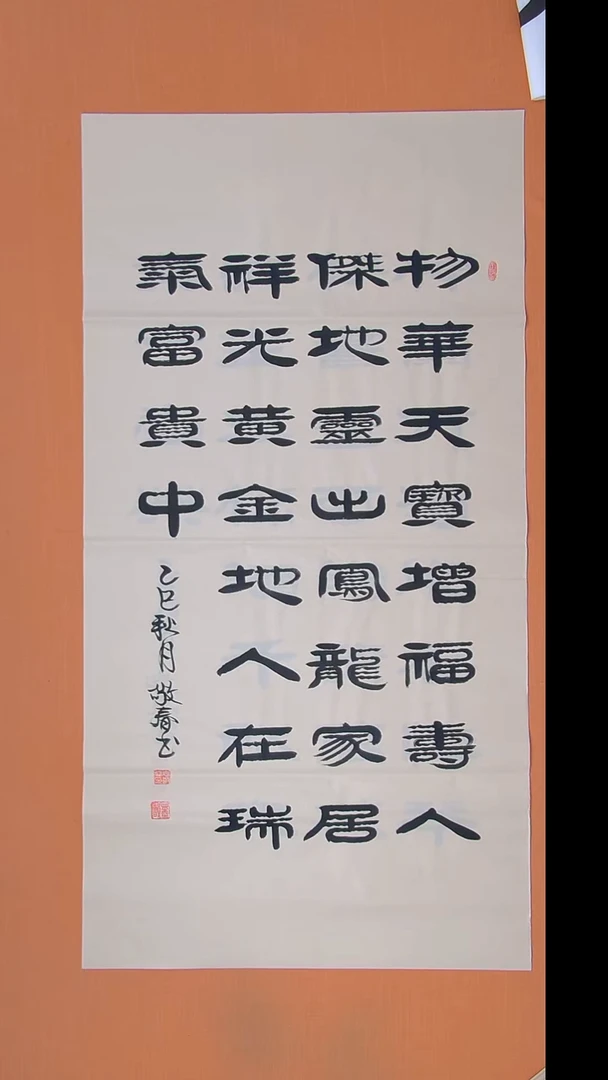 物華天寶增福壽人
傑地靈出鳳龍家居
祥光黃金地人在瑞
氣富貴中
乙巳秋月 敬春书